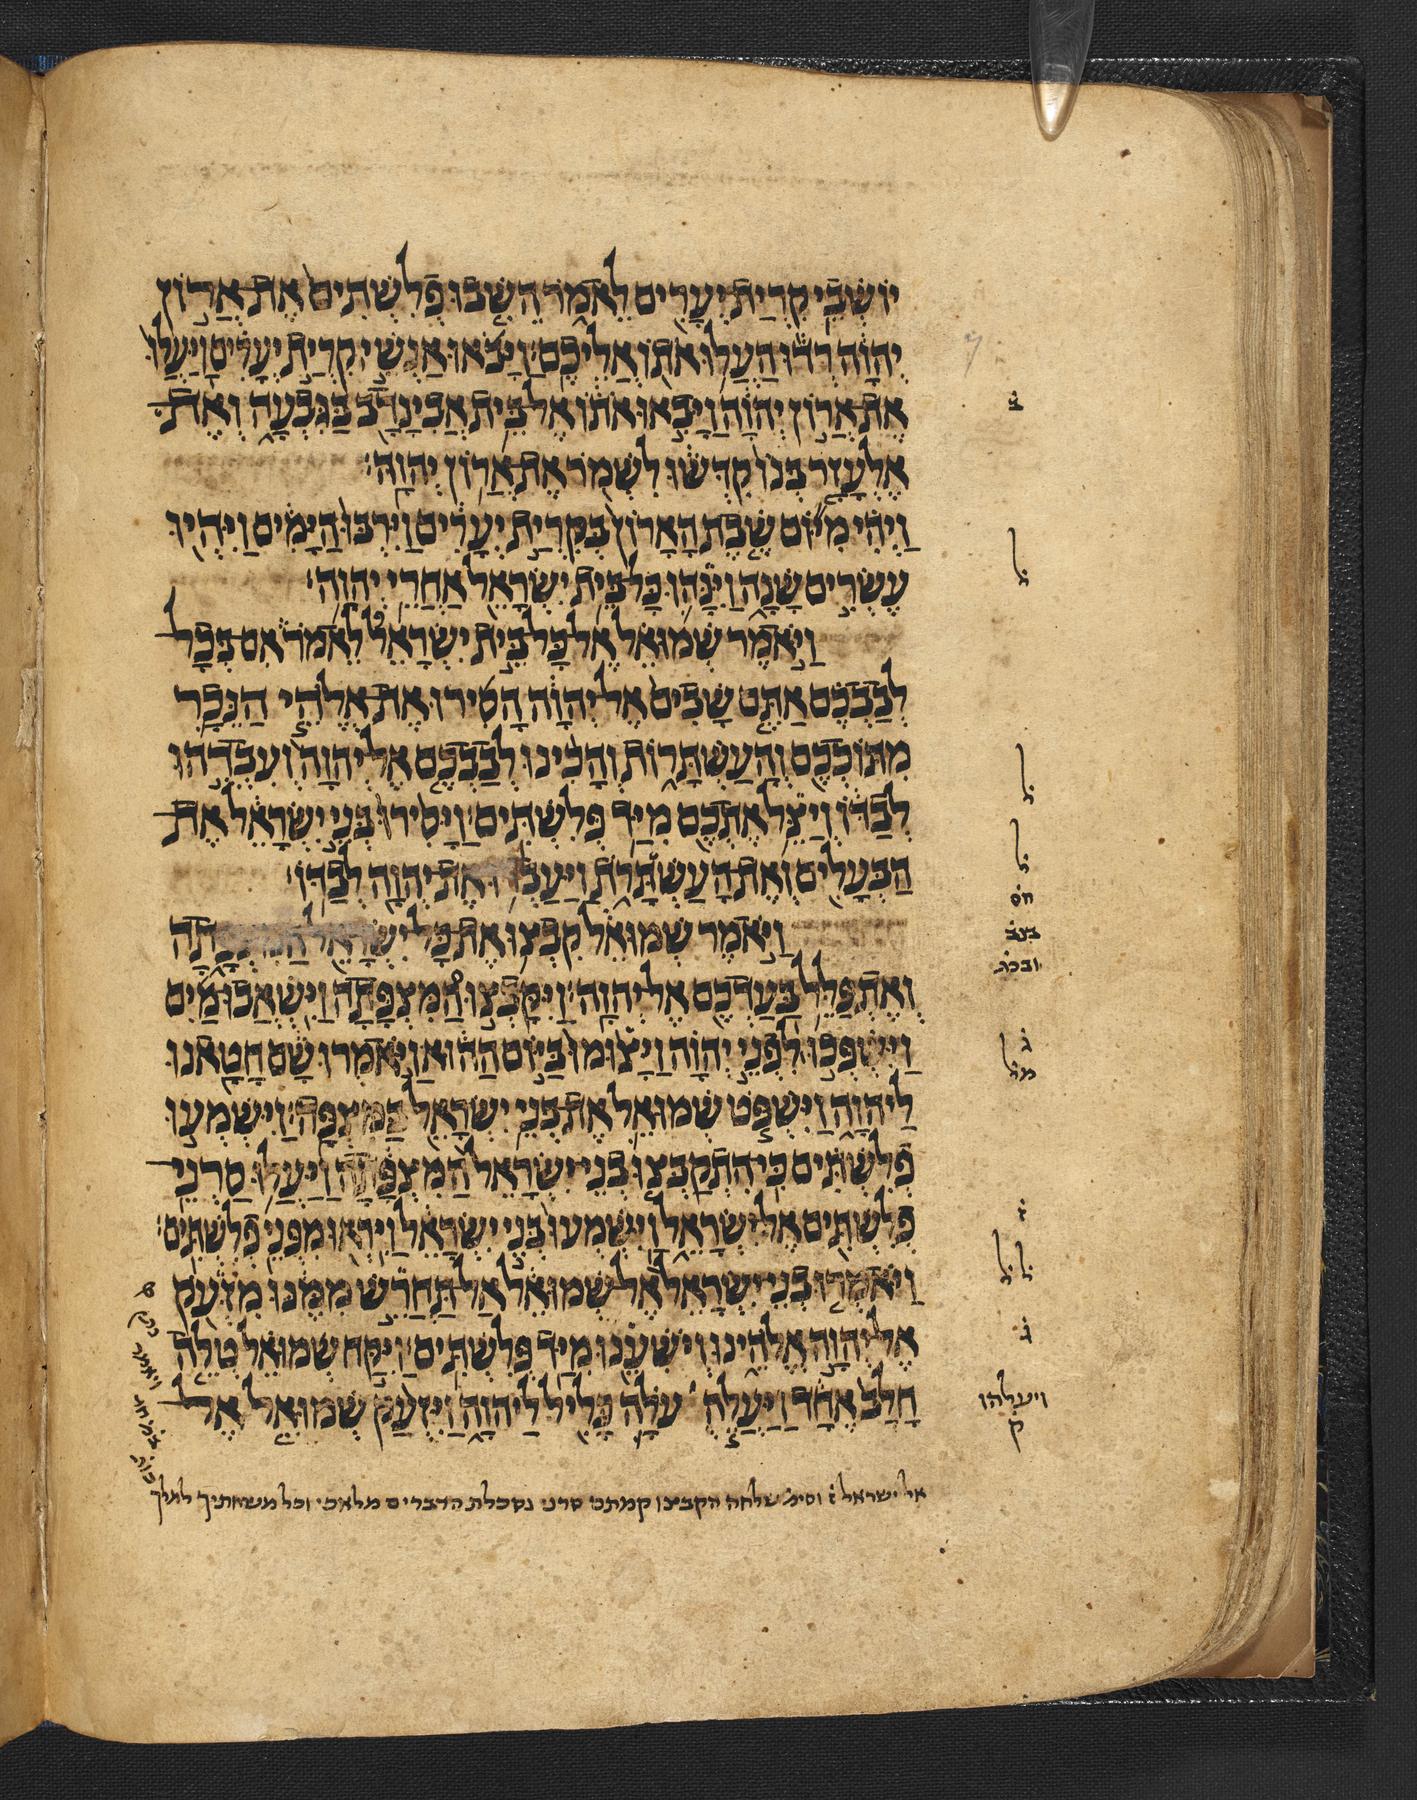 יוֹשְׁבֵי קִרְיַת יְעָרִים לֵאמֹר הֵשִׁבוּ פְלִשְׁתִּים אֶת אֲרוֹן
יְהוָה רְדוּ הַעֲלוּ אֹתוֹ אֲלֵיכֶם׃ וַיָּבֹאוּ אַנְשֵׁי קִרְיַת יְעָרִים וַיַּעֲלוּ
אֶת אֲרוֹן יְהוָה וַיָּבִאוּ אֹתוֹ אֶל בֵּית אֲבִינָדָב בַּגִּבְעָה וְאֶת
אֶלְעָזָר בְּנוֹ קִדְּשׁוּ לִשְׁמֹר אֶת אֲרוֹן יְהוָה׃
וַיְהִי מִיּוֹם שֶׁבֶת הָאָרוֹן בְּקִרְיַת יְעָרִים וַיִּרְבּוּ הַיָּמִים וַיִּהְיוּ
עֶשְׂרִים שָׁנָה וַיִּנָּהוּ כָּל בֵּית יִשְׂרָאֵל אַחֲרֵי יְהוָה׃
וַיֹּאמֶר שְׁמוּאֵל אֶל כָּל בֵּית יִשְׂרָאֵל לֵאמֹר אִם בְּכָל
לְבַבְכֶם אַתֶּם שָׁבִים אֶל יְהוָה הָסִירוּ אֶת אֱלֹהֵי הַנֵּכָר
מִתּוֹכְכֶם וְהָעַשְׁתָּרוֹת וְהָכִינוּ לְבַבְכֶם אֶל יְהוָה וְעִבְדֻהוּ
לְבַדּוֹ וְיַצֵּל אֶתְכֶם מִיַּד פְּלִשְׁתִּים׃ וַיָּסִירוּ בְּנֵי יִשְׂרָאֵל אֶת
הַבְּעָלִים וְאֶת הָעַשְׁתָּרֹת וַיַּעַב וּ אֶת יְהוָה לְבַדּוֹ׃
וַיֹּאמֶר שְׁמוּאֵל קִבְצוּ אֶת כָּל יִשְׂרָאֵל הַמִּצְפָּתָה
וְאֶתְפַּלֵּל בַּעַדְכֶם אֶל יְהוָה׃ וַיִּקָּבְצוּ הַמִּצְפָּתָה וַיִּשְׁאֲבוּ מַיִם
וַיִּשְׁפְּכוּ לִפְנֵי יְהוָה וַיָּצוּמוּ בַּיּוֹם הַהוּא וַיֹּאמְרוּ שָׁם חָטָאנוּ
לַיהוָה וַיִּשְׁפֹּט שְׁמוּאֵל אֶת בְּנֵי יִשְׂרָאֵל בַּמִּצְפָּה׃ וַיִּשְׁמְעוּ
פְלִשְׁתִּים כִּי הִתְקַבְּצוּ בְנֵי יִשְׂרָאֵל הַמִּצְפָּתָה וַיַּעֲלוּ סַרְנֵי
פְלִשְׁתִּים אֶל יִשְׂרָאֵל וַיִּשְׁמְעוּ בְּנֵי יִשְׂרָאֵל וַיִּרְאוּ מִפְּנֵי פְלִשְׁתִּים׃
וַיֹּאמְרוּ בְנֵי יִשְׂרָאֵל אֶל שְׁמוּאֵל אַל תַּחֲרֵשׁ מִמֶּנּוּ מִזְּעֹק
אֶל יְהוָה אֱלֹהֵינוּ וְיֹשִׁעֵנוּ מִיַּד פְּלִשְׁתִּים׃ וַיִּקַּח שְׁמוּאֵל טְלֵה
חָלָב אֶחָד וַיַּעֲלֶה עוֹלָה כָּלִיל לַיהוָה וַיִּזְעַק שְׁמוּאֵל אֶל
ב
ל
ל
ל
חס
ובכת
ג
ל ל
ג
ויעלהו
ק
אל ישראל וסימ שלחה הקבצו קמתם סרני נסכלת הדברים מלאכי וכל משחתיך